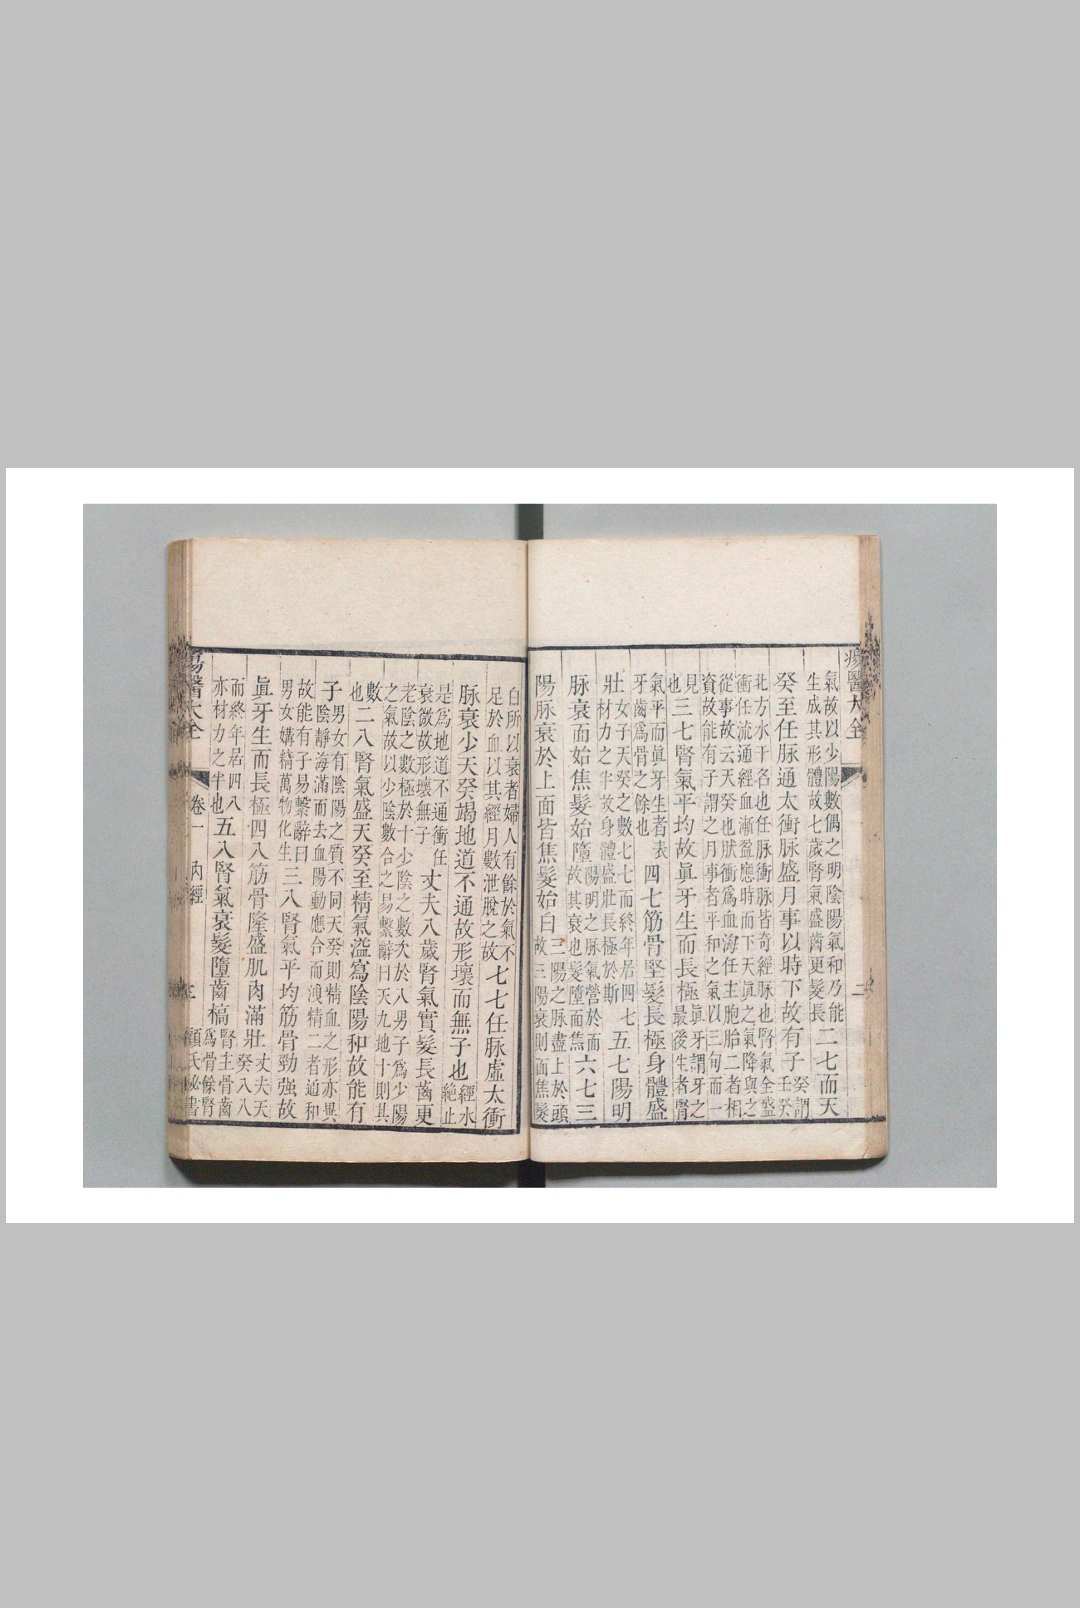 瘍醫大全
二
氣故以少陽數偶之明陰陽氣和乃能
生成其形體故七歲腎氣盛齒更髮長
二七而天
癸至任脉通太衝脉盛月事以時下故有子
癸謂
壬癸
北方水干名也任脉衝脉皆奇經脉也腎氣全盛
衝任流通經血漸盈應時而下天眞之氣降與之
從事故云天癸也然衝爲血海任主胞胎二者相
資故能有子謂之月事者平和之氣以三旬而一
見
也
三七腎氣平均故眞牙生而長極
眞牙謂牙之
最後生者腎
氣平而眞牙生者表
牙齒爲骨之餘也
四七筋骨堅髮長極身體盛
壯
女子天癸之數七七而終年居四七
材力之半故身體盛壯長極於斯
五七陽明
脉衰面始焦髮始墮
陽明之脉氣營於面
故其衰也髮墮面焦
六七三
陽脉衰於上面皆焦髮始白
三陽之脉盡上於頭
故三陽衰則面焦髮
白所以衰者婦人有餘於氣不
足於血以其經月數泄脫之故
七七任脉虛太衝
脉衰少天癸竭地道不通故形壞而無子也
經水
絶止
是爲地道不通衝任
衰微故形壞無子
丈夫八歲腎氣實髮長齒更
老陰之數極於十少陰之數次於八男子爲少陽
之氣故以少陰數合之易繫辭曰天九地十則其
數
也
二八腎氣盛天癸至精氣溢寫陰陽和故能有
子
男女有陰陽之質不同天癸則精血之形亦異
陰靜海滿而去血陽動應合而溲精二者通和
故能有子易繫辭曰
男女媾精萬物化生
三八腎氣平均筋骨勁强故
眞牙生而長極四八筋骨隆盛肌肉滿壯
丈夫天
癸八八
而終年居四八
亦材力之半也
五八腎氣衰髮墮齒槁
腎主骨齒
爲骨餘腎
瘍醫大全
卷一
內經
三
顧氏秘書